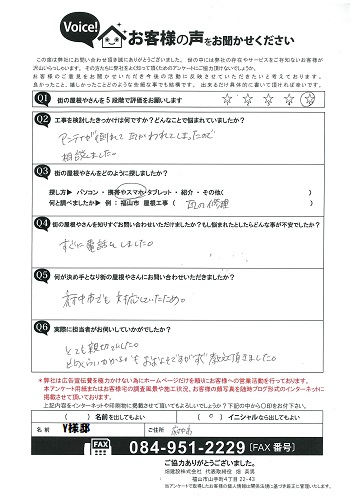 Voice!
お客様の声をお聞かせください
この度は弊社にお問い合わせ頂き誠にありがとうございます。世の中には弊社の存在やサービスをご存知ないお客様が
沢山いらっしゃいます。その方たちに弊社をよく知って頂くためのアンケートにご協力頂けないでしょうか。
お客様のご意見をお聞かせいただき今後の活動に反映させていただきたいと考えております。
良かったこと、嬉しかったことどのような些細な事でも結構です。 出来るだけ具体的に書いて頂ければ幸いです。
Q1 街の屋根やさんを5段階で評価をお願いします
Q2 工事を検討したきっかけは何ですか?どんなことで悩まれていましたか?
アンテナが倒れて瓦がわれてしまったので
相談しました。
Q3 街の屋根やさんをどのように探しましたか?
探し方▶ パソコン・携帯やスマホ・タブレット・紹介・その他( )
何と調べましたか▶ 例:福山市 屋根工事 ( 瓦の修理 )
Q4 街の屋根やさんを知りすぐお問い合わせいただけましたか?もし悩まれたとしたらどんな事が不安でしたか?
すぐに電話をしました。
Q5 何が決め手となり街の屋根やさんにお問い合わせいただきましたか?
府中市でも対応していたため。
Q6 実際に担当者がお伺いしていかがでしたか?
とても親切でした。
どれくらいかかるかもおおよそですがすぐ教えて頂きました。
*弊社は広告宣伝費を極力かけない為にホームページだけを頼りにお客様への営業活動を行っております。
本アンケート用紙またはお客様宅の調査風景や施工状況、お客様の顔写真を随時ブログ形式のインターネットに
掲載させて頂いております。
上記内容をインターネットや印刷物に掲載させて頂いてもよろしいでしょうか? 下記の中から〇印をお付け下さい。
( ) 名前を出してもよい ( 〇 ) イニシャルなら出してもよい
名前 Y様邸 ご住所 府中市
FAX 084-951-2229 [FAX 番号]
ご協力ありがとうございました。
福山市山手町4丁目22-43
※アンケートで取得したお客様の個人情報は関係法規に基づき厳正に管理いたします。